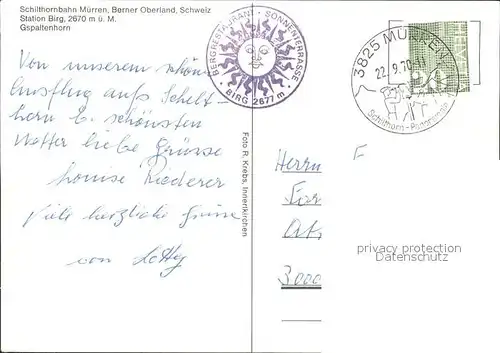 Schilthornbahn Mürren, Berner Oberland, Schweiz
Station Birg, 2670 m ü. M.
Gspaltenhorn
BERGRESTAURANT · SONNENTERRASSE
· BIRG 2677 m ·
3825 MÜRREN
22.9.70
Schilthorn-Panorama
HELVETIA
20
Von unserem schönen
Ausflug aufs Schilt-
horn b. schönsten
Wetter liebe Grüsse
Louise Riederer
Viele herzliche Grüsse
von Lotty
Foto R. Krebs, Innertkirchen
Herrn F
3000
privacy protection
Datenschutz